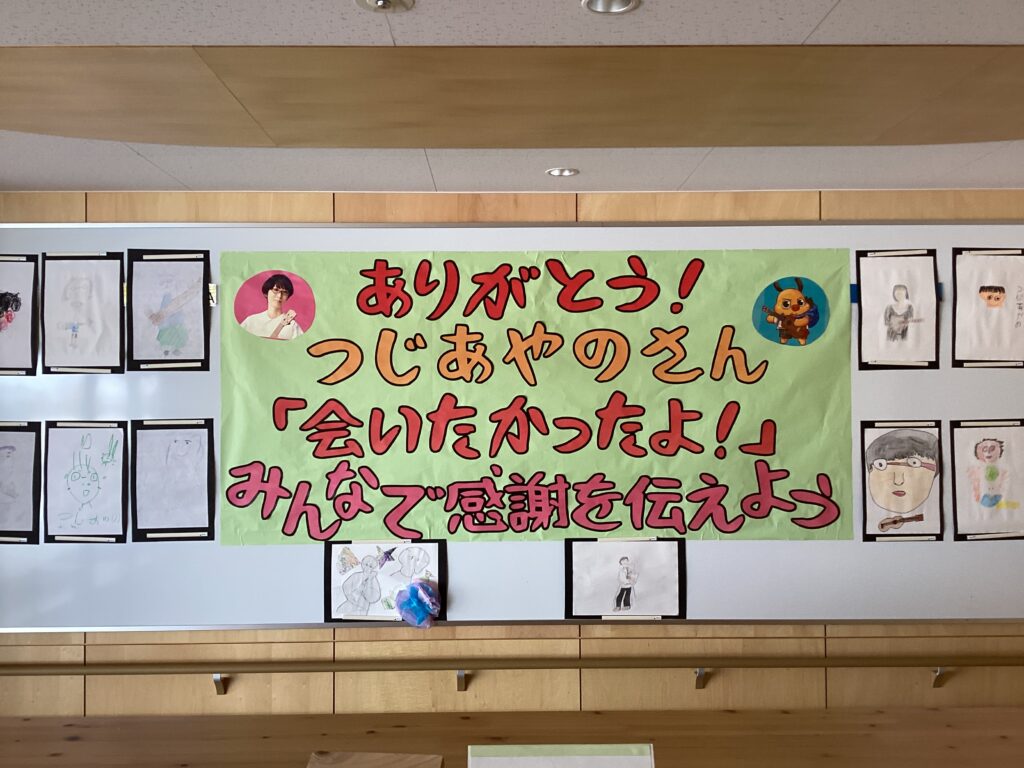 ありがとう!
つじあやのさん
「会いたかったよ!」
みんなで感謝を伝えよう
つじあやの